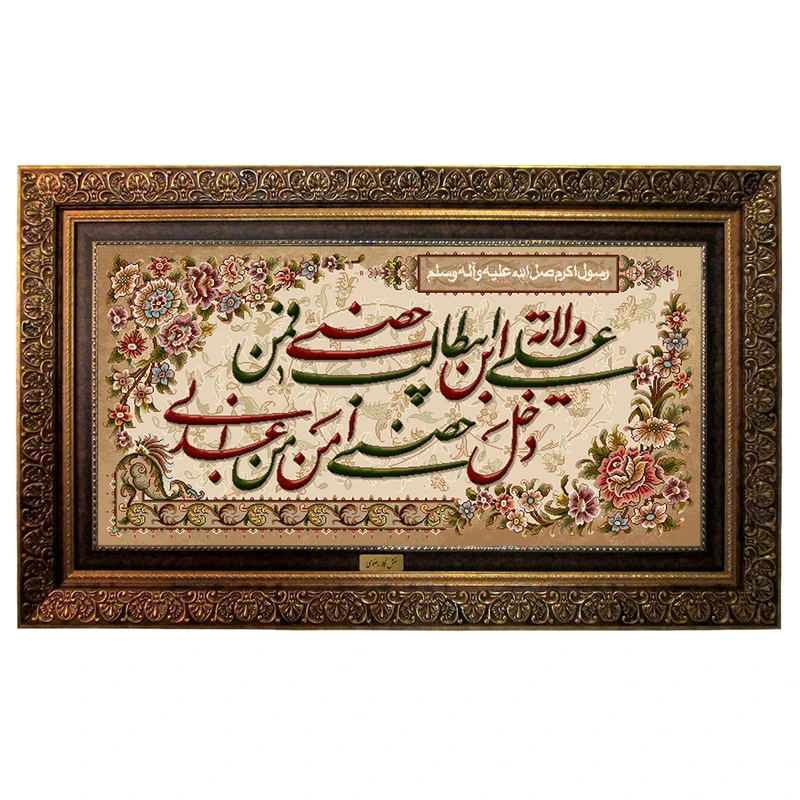 رسول اکرم صل الله علیه وآله وسلم
ولاية علي ابن ابيطالب حصني فمن
دخل حصني امن من عذابي